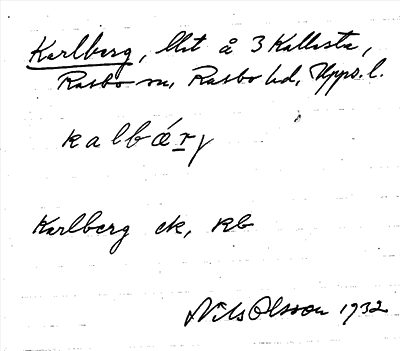 Karlberg, lht å 3 Kallesta,
Rasbo sn, Rasbo hd, Upps. l.
kalbǽrj
Karlberg ek, kb
Nils Olsson 1932